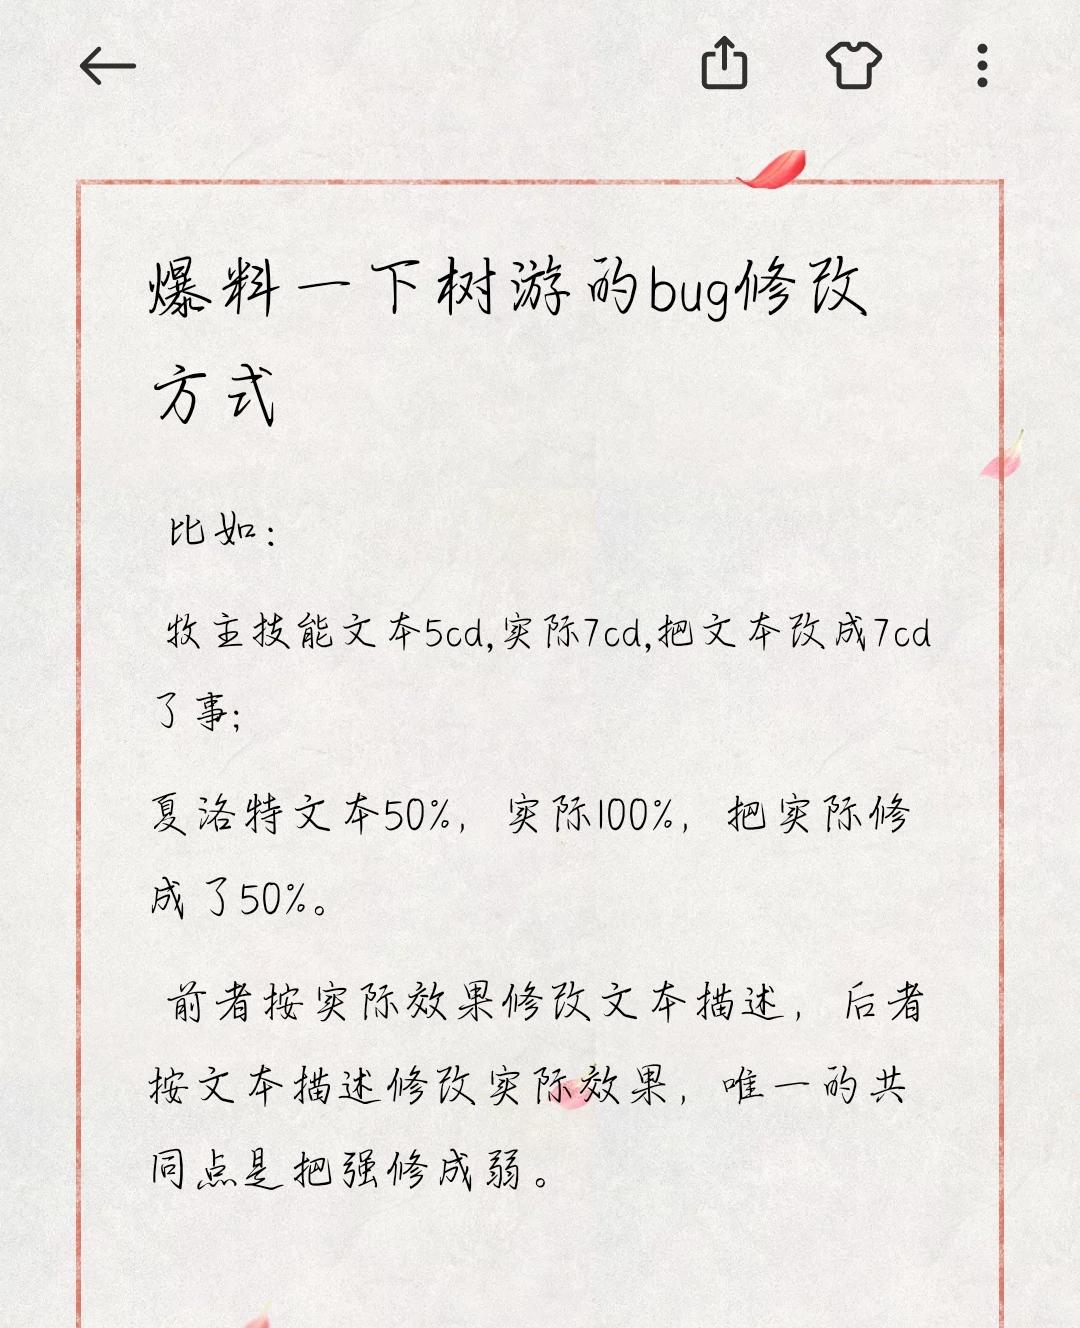 爆料一下树游的bug修改
方式
比如:
牧主技能文本5cd,实际7cd,把文本改成7cd
了事;
夏洛特文本50%，实际100%，把实际修
成了50%。
前者按实际效果修改文本描述，后者
按文本描述修改实际效果，唯一的共
同点是把强修成弱。